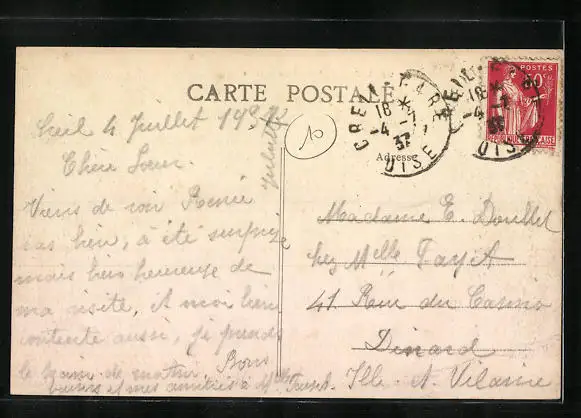 CARTE POSTALE
Adresse
CREIL GARE
18 * 4 - 7 37
OISE
CREIL GARE
18 * 4 - 7
OISE
POSTES
50c
REPUBLIQUE FRANÇAISE
10
Creil 4 Juillet 19
Chère Sœur
Viens de voir Renée
pas bien, a été surprise
mais bien heureuse de
ma visite, et moi bien
contente aussi, je prends
le train de
Bons
baisers et mes amitiés à Mlle
Juliette
Madame E. Doullet
chez Melle Fayet
41 Rue du Casino
Dinard
Ille et Vilaine